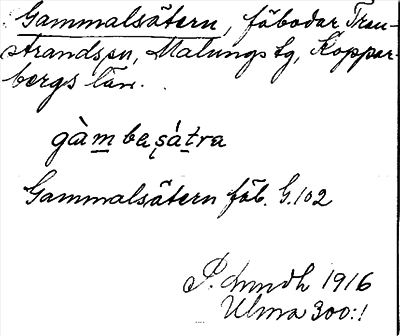 Gammalsätern, fäbodar Tran-
strands sn, Malungs tg, Koppar-
bergs län.
gàmbasátra
Gammalsätern fäb. G.102
P. Lundh 1916
Ulma 300:1